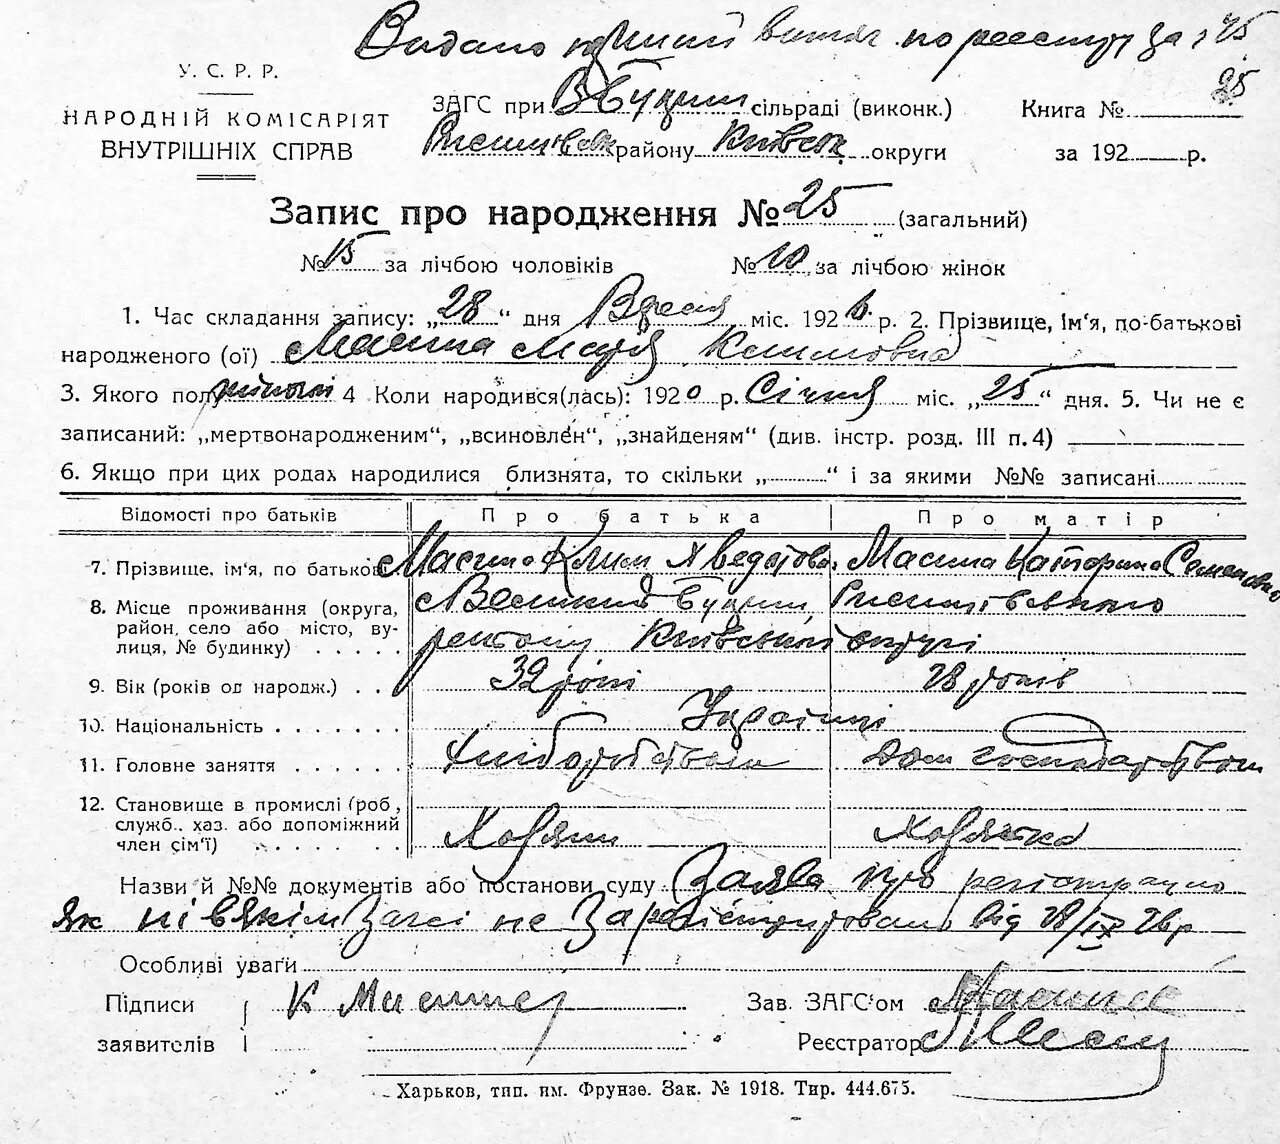 Видано повний витяг по реестру за № 25
У. С. Р. Р.
НАРОДНІЙ КОМІСАРІЯТ
ВНУТРІШНІХ СПРАВ
ЗАГС при В Буцкім сільраді (виконк.)
району Київськ округи
Книга № 25
за 192 р.
Запис про народження № 25 (загальний)
№ 15 за лічбою чоловіків № 10 за лічбою жінок
1. Час складання запису: „28“ дня Вересня міс. 1926 р. 2. Прізвище, ім'я, по-батькові
народженого (ої) Масина Марія Климовна
3. Якого полу жіночої 4 Коли народився(лась): 1920 р. Січня міс. „25“ дня. 5. Чи не є
записаний: „мертвонародженим“, „всиновлён“, „знайденям“ (див. інстр. розд. III п. 4)
6. Якщо при цих родах народилися близнята, то скільки „ “ і за якими №№ записані
Відомості про батьків Про батька Про матір
7. Прізвище, ім'я, по батькові Масина Клим Масина Катерина Семеновна
8. Місце проживання (округа,
район, село або місто, ву-
лиця, № будинку)
Великий Букрин
району Київської округи
9. Вік (років од народж.) 32 роки 28 років
10. Національність Українці
11. Головне заняття хліборобством дом господарством
12. Становище в промислі (роб.,
служб., хаз. або допоміжний
член сім'ї)
Хазяїн Хазяйка
Назви й №№ документів або постанови суду Заява про регістрацію
як ні в якім Загсі не Зарегістрировано від 28/IX 26 р
Особливі уваги
Підписи К
заявителів
Зав. ЗАГС'ом
Реєстратор
Харьков, тип. им. Фрунзе. Зак. № 1918. Тир. 444.675.